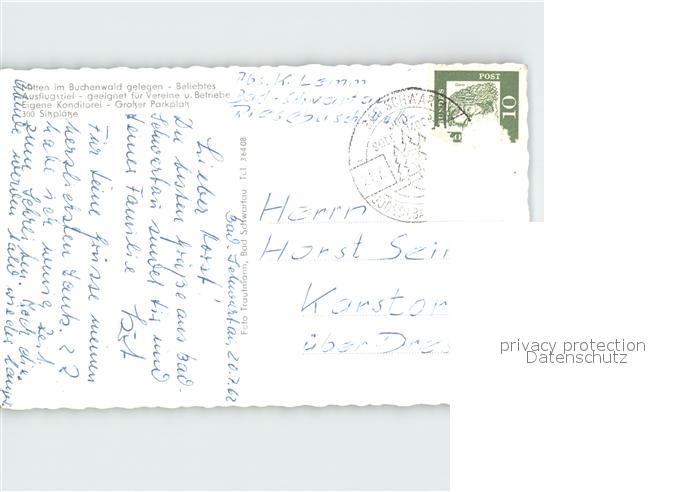 Mitten im Buchenwald gelegen - Beliebtes
Ausflugsziel - geeignet für Vereine u. Betriebe
Eigene Konditorei - Großer Parkplatz
300 Sitzplätze
Abs. K. Lamm
Bad-Schwartau
Riesebusch
POST
10
Herrn
Horst Sei
Karstor
über Dres
Foto Trautmann, Bad Schwartau Tel. 36408
Bad-Schwartau, 20.7.62
Lieber Horst!
Die besten Grüße aus Bad-
Schwartau sendet Dir und
Deiner Familie
Für Deine Grüsse meinen
herzlichsten Dank. Z Z
habe ich wenig Zeit
zum Schreiben. Doch die
Abende werden bald wieder länger
privacy protection
Datenschutz